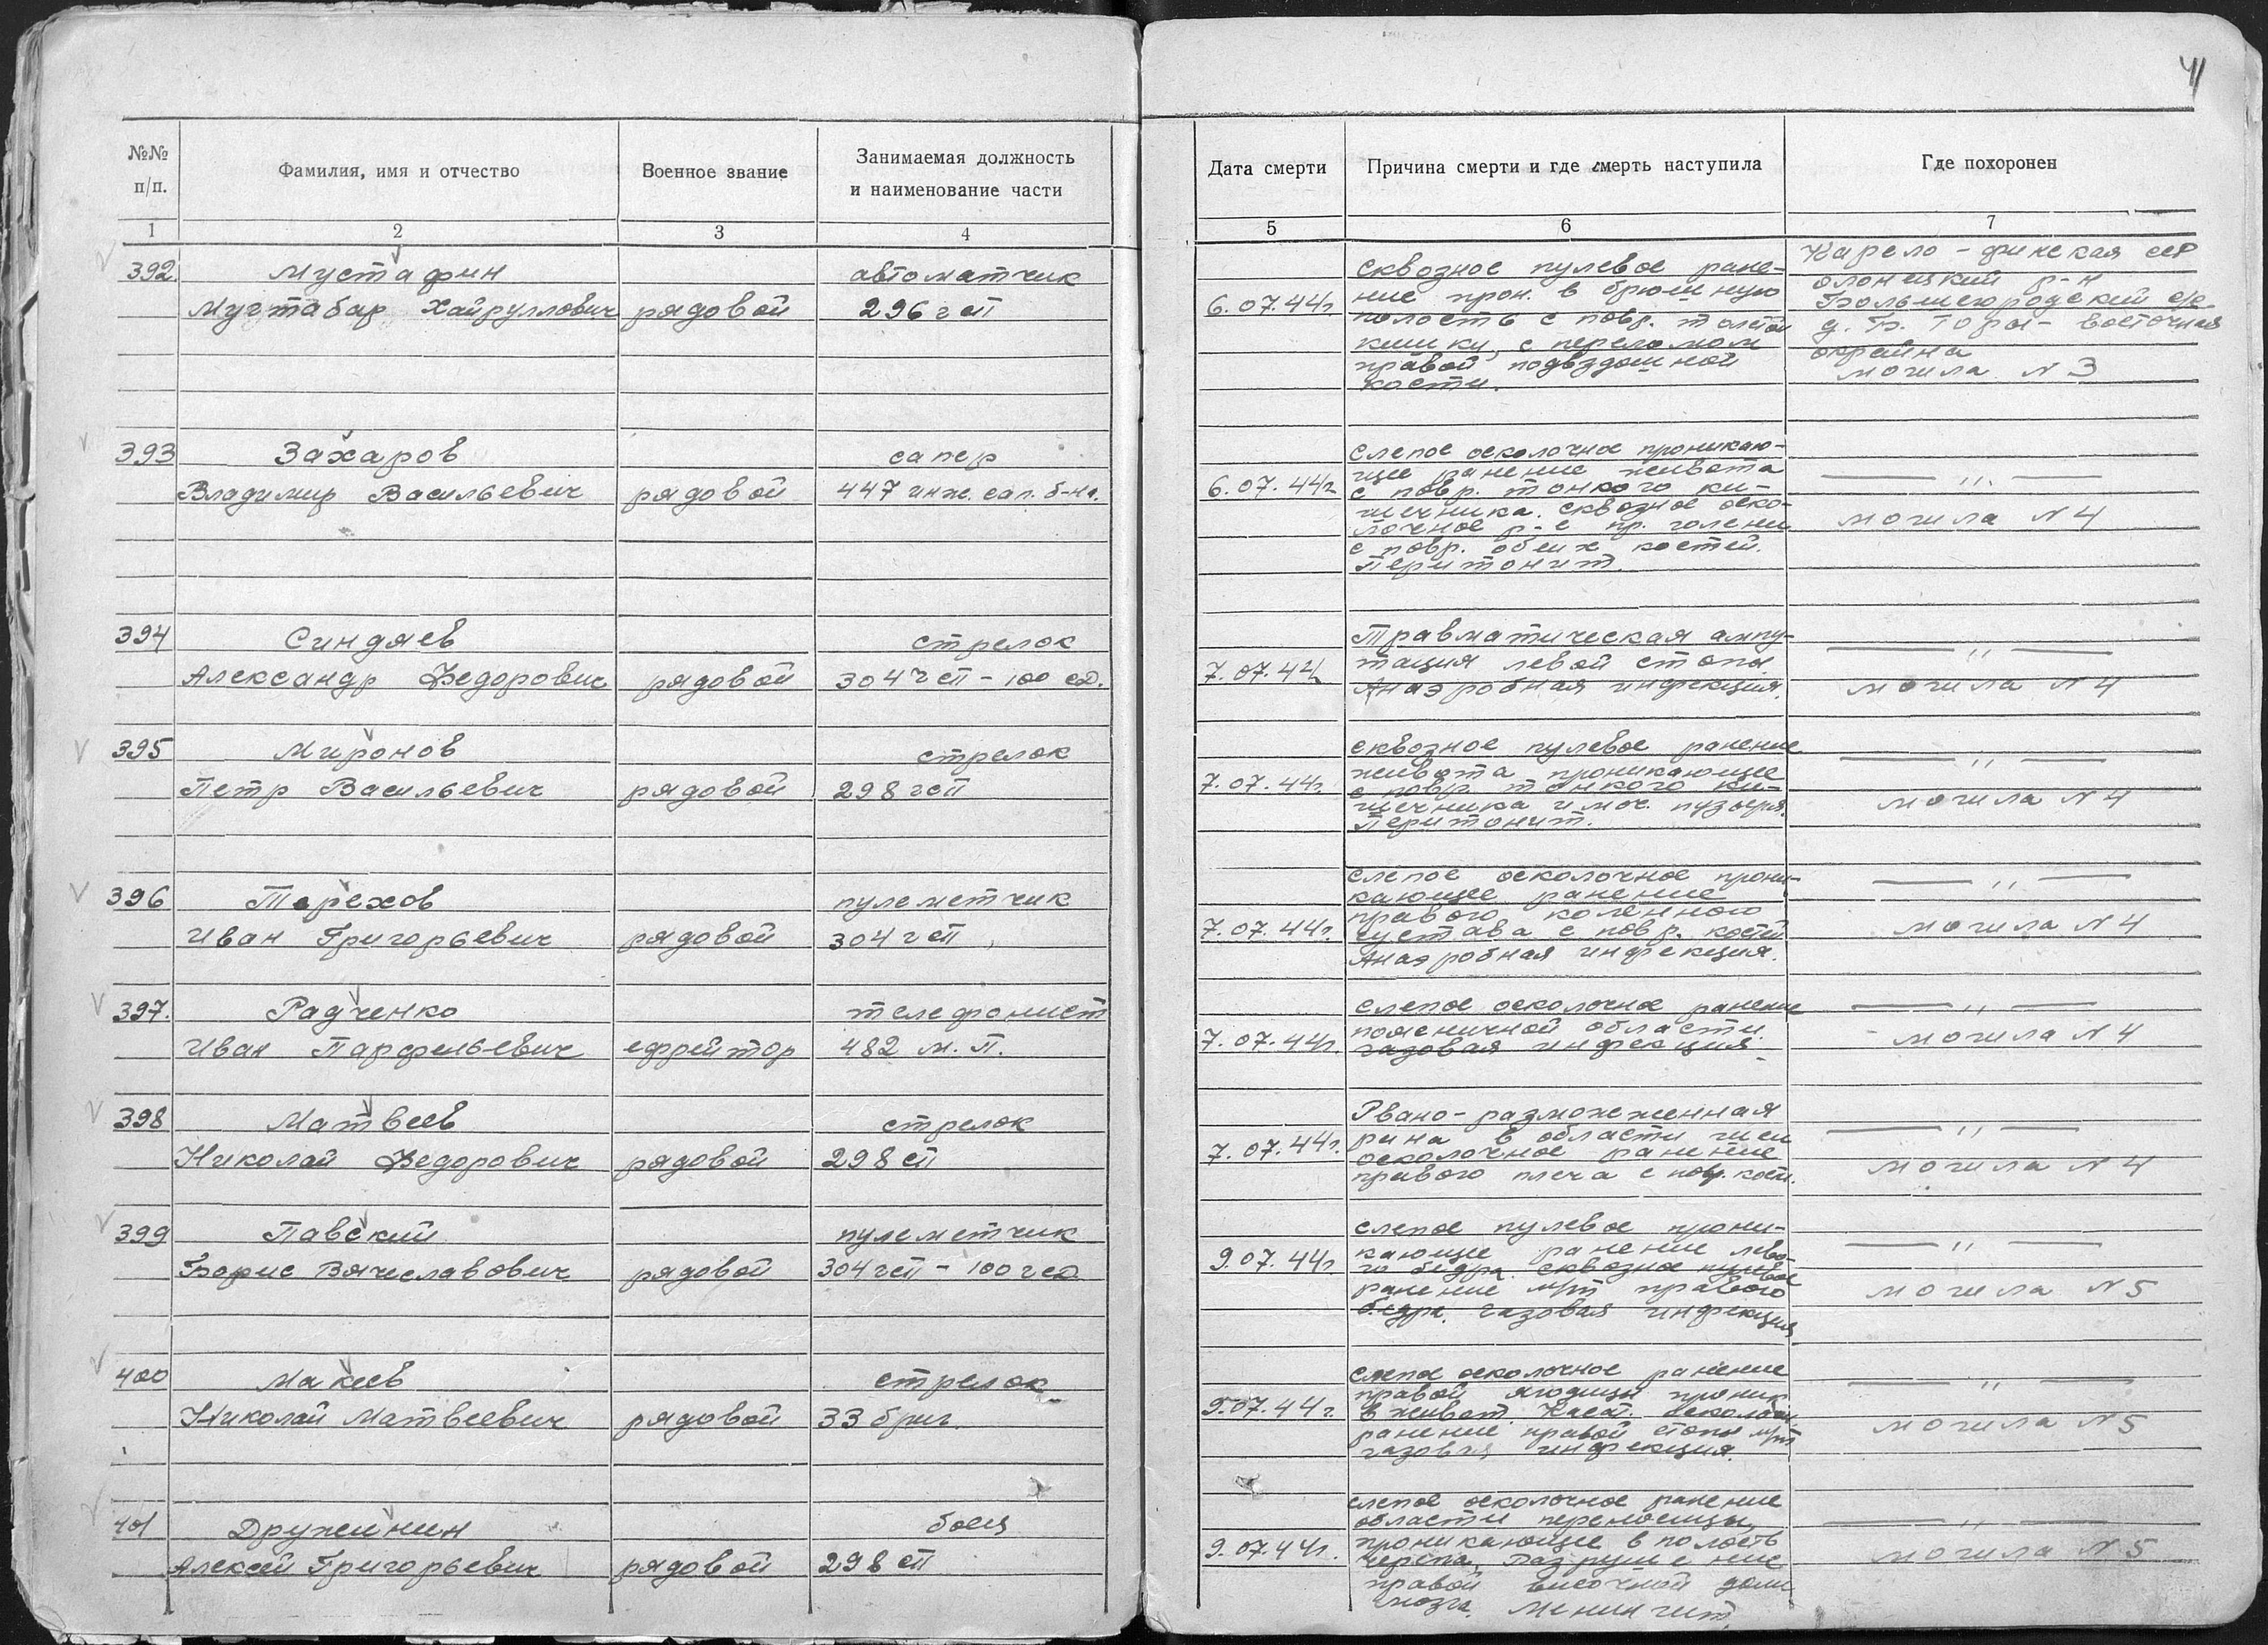 41
№№ п/п.
Фамилия, имя и отчество
Военное звание
Занимаемая должность и наименование части
Дата смерти
Причина смерти и где смерть наступила
Где похоронен
1 2 3 4 5 6 7
392 Мустафин автоматчик
Мугтабар Хайруллович рядовой 296 гсп
6.07.44г.
Сквозное пулевое ране-
ние прон. в брюшную
полость с повр. толстой
кишки, с переломом
правой подвздошной
кости.
Карело-финская ССР
Олонецкий р-н
д. Б. Горы - восточная
окраина
могила N 3
393 Захаров сапер
Владимир Васильевич рядовой 447 инж. сап. б-на.
6.07.44г.
Слепое осколочное проникаю-
щее ранение живота
с повр. тонкого ки-
шечника. Сквозное оско-
лочное р-е пр. голени
с повр. обеих костей.
Перитонит.
— ,, —
могила N 4
394 Синдяев стрелок
Александр Федорович рядовой 304 гсп - 100 сд.
7.07.44
Травматическая ампу-
тация левой стопы
Анаэробная инфекция.
— ,, —
могила N 4
395 Миронов стрелок
Петр Васильевич рядовой 298 гсп
7.07.44г.
Сквозное пулевое ранение
живота проникающее
с повр. тонкого ки-
шечника и моч. пузыря.
Перитонит.
— ,, —
могила N 4
396 Терехов пулеметчик
Иван Григорьевич рядовой 304 гсп
7.07.44г.
Слепое осколочное прони-
кающее ранение
правого коленного
сустава с повр. костей
Анаэробная инфекция.
— ,, —
могила N 4
397. Радченко телефонист
Иван Парфильевич ефрейтор 482 м.п.
7.07.44г.
Слепое осколочное ранение
поясничной области.
газовая инфекция
— ,, —
могила N 4
398 Матвеев стрелок
Николай Федорович рядовой 298 сп
7.07.44г.
Рвано-размозженная
рана в области шеи
осколочное ранение
правого плеча с повр. кости.
— ,, —
могила N 4
399 Павский пулеметчик
Борис Вячеславович рядовой 304 гсп - 100 гсд
9.07.44г.
Слепое пулевое прони-
кающее ранение лево-
го бедра. Сквозное пулевое
ранение м/т правого
бедра. газовая инфекция
— ,, —
могила N 5
400 Макеев стрелок
Николай Матвеевич рядовой 33 бриг.
9.07.44г.
Слепое осколочное ранение
правой ягодицы проник.
в живот. Касат. осколочн.
ранение правой стопы м/т
газовая инфекция.
— ,, —
могила N 5
401 Дружинин боец
Алексей Григорьевич рядовой 298 сп
9.07.44г.
Слепое осколочное ранение
области переносицы,
проникающее в полость
черепа, разрушение
правой височной доли
мозга. Менингит
— ,, —
могила N 5